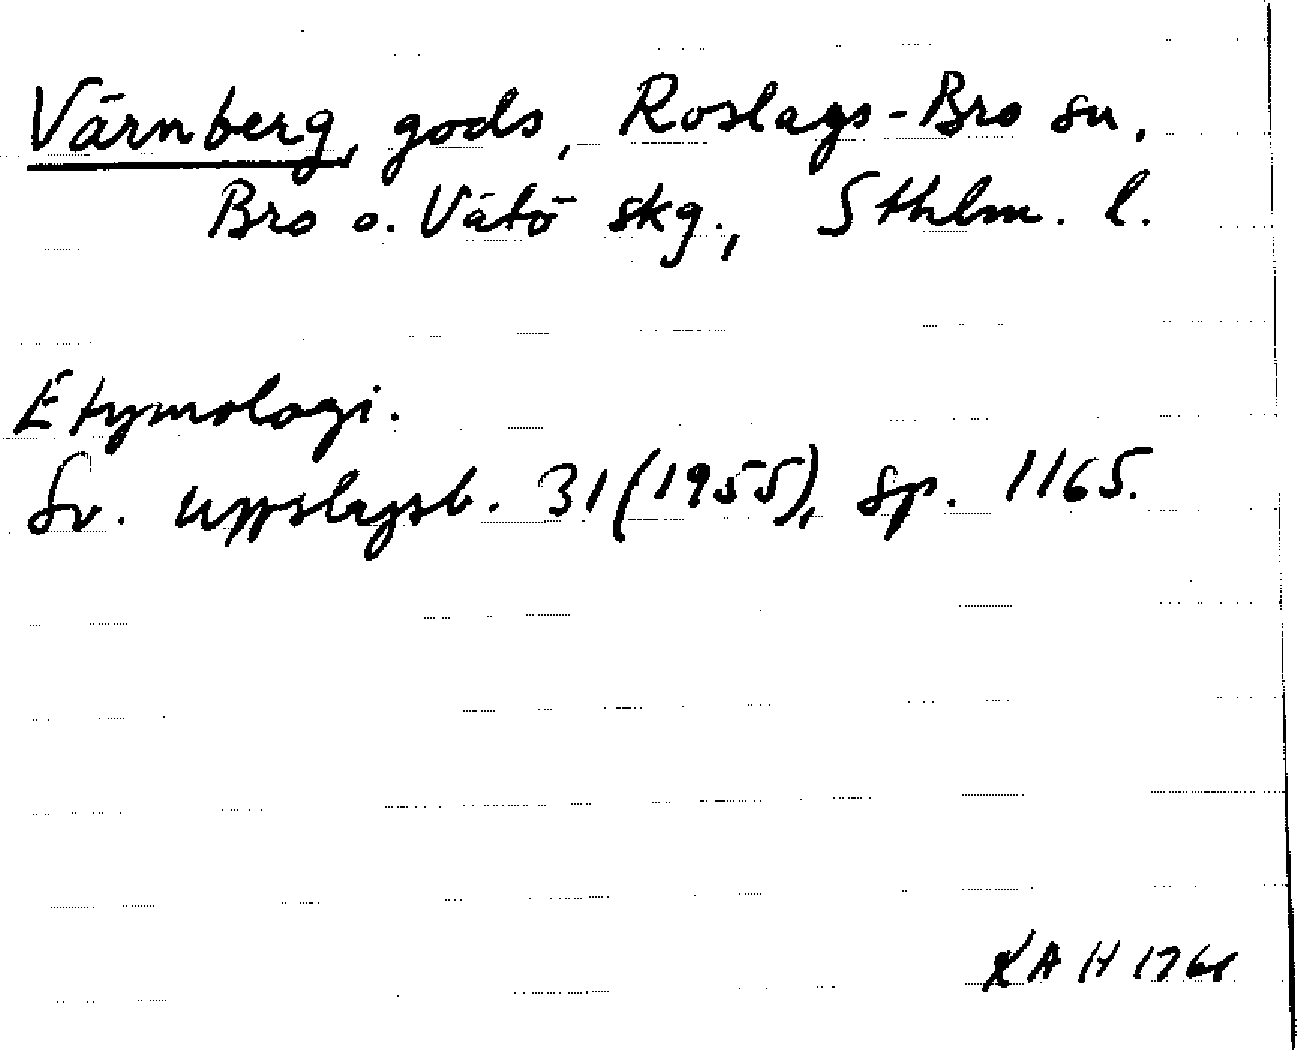 Värnberg, gods, Roslags-Bro sn,
Bro o. Vätö skg., Sthlm. l.
Etymologi.
Sv. uppslagsb. 31 (1955), sp. 1165.
KAH